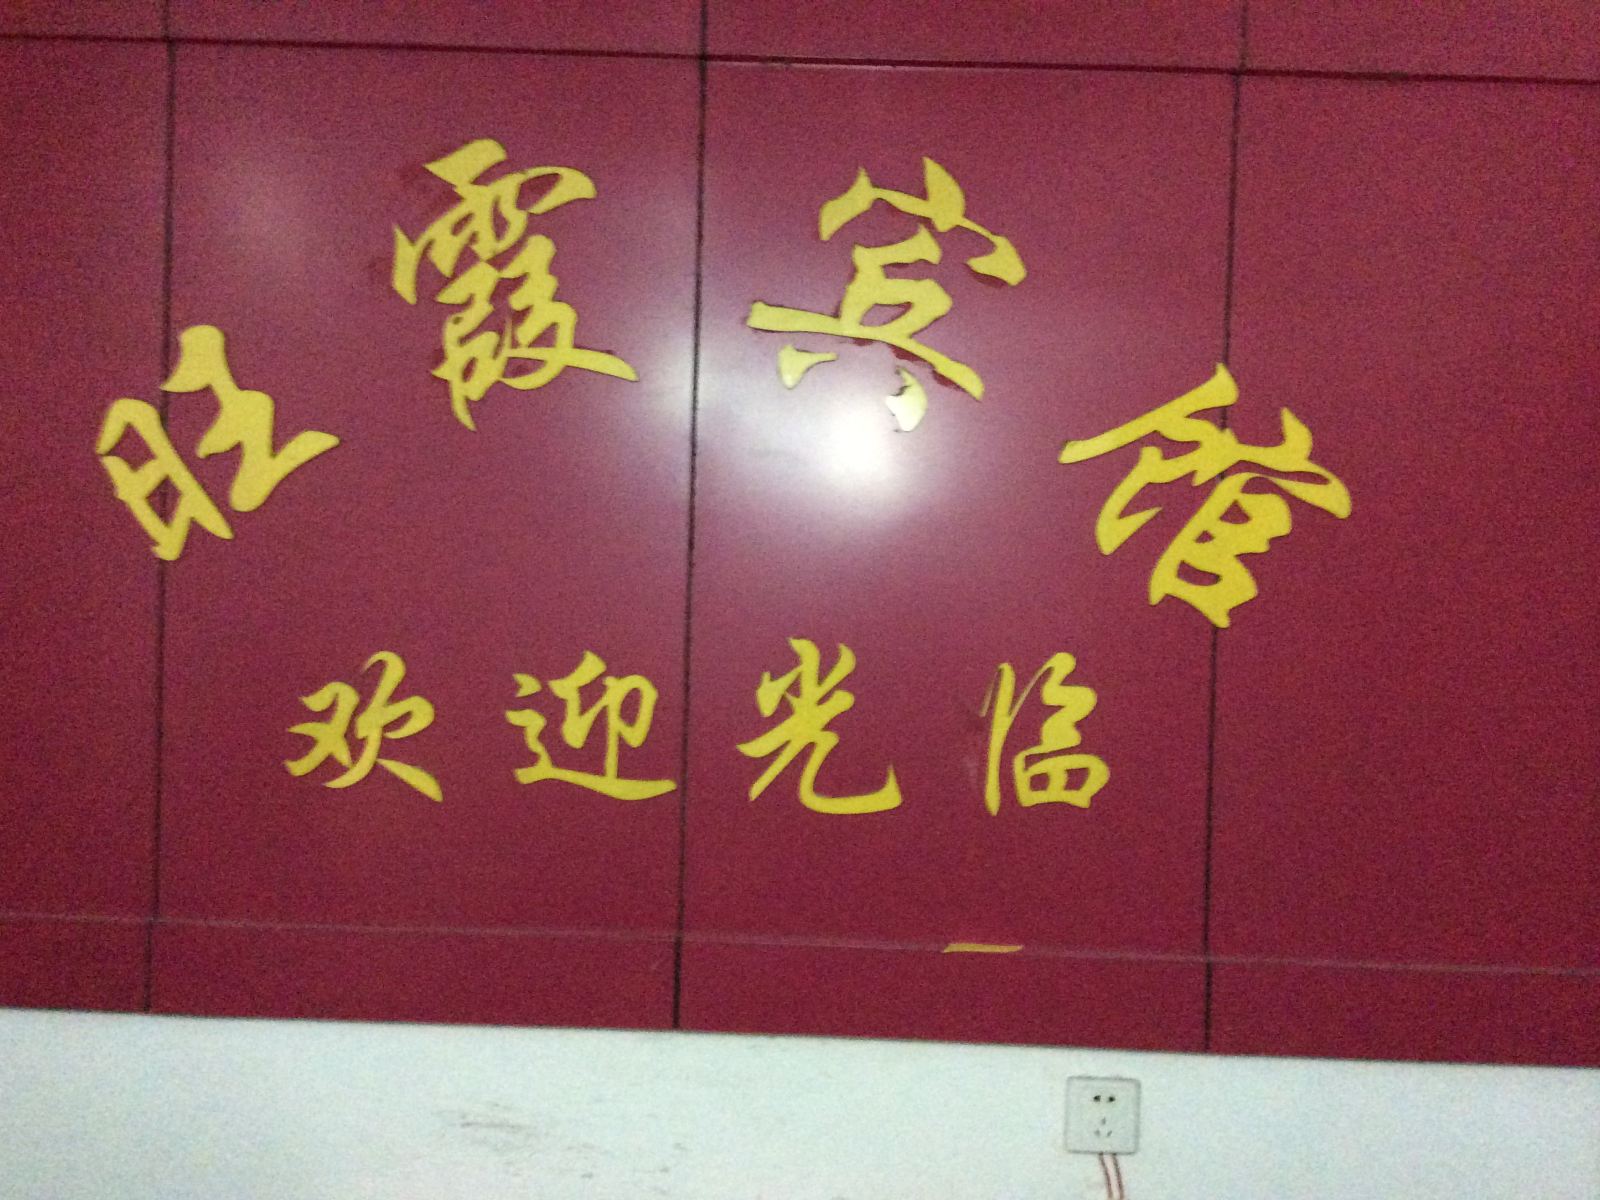 旺霞宾馆
欢迎光临